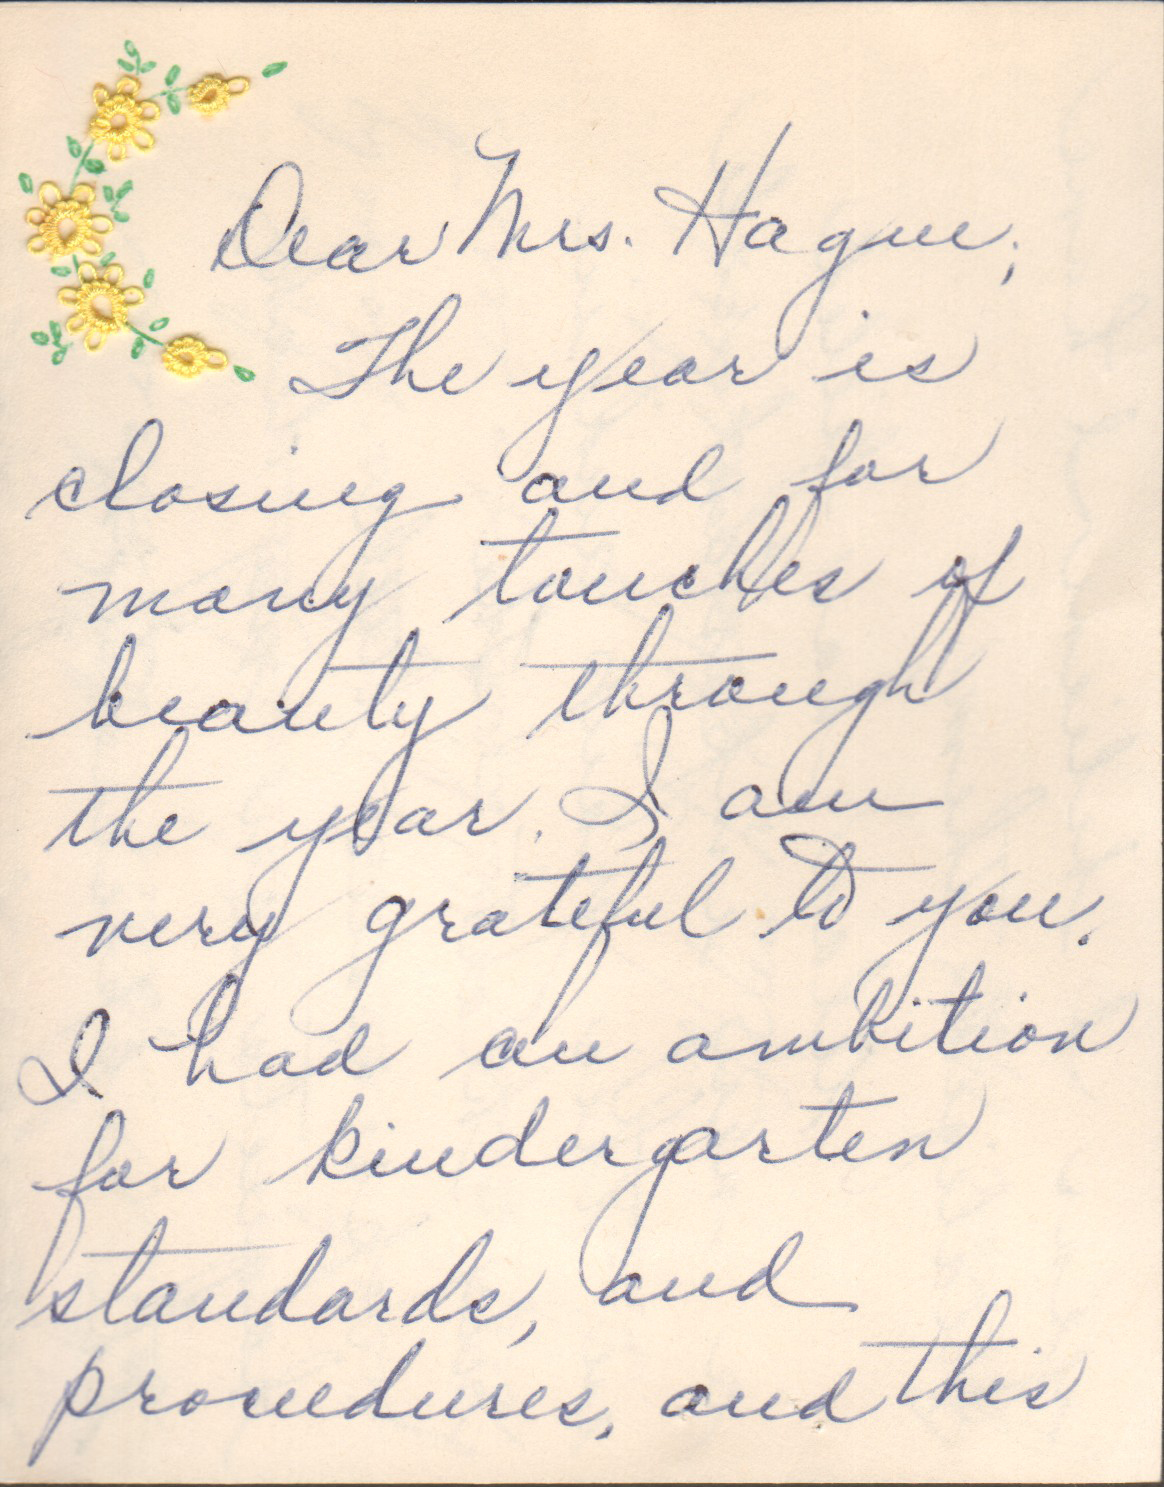 Dear Mrs. Hague,
The year is
closing and for
many touches of
beauty through
the year. I am
very grateful to you.
I had an ambition
for kindergarten
standards, and
procedures, and this